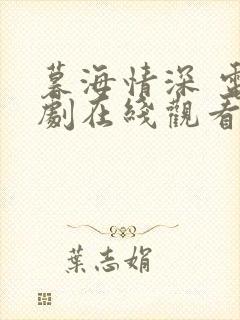 暮海情深 電
劇在綫觀看
葉志娟